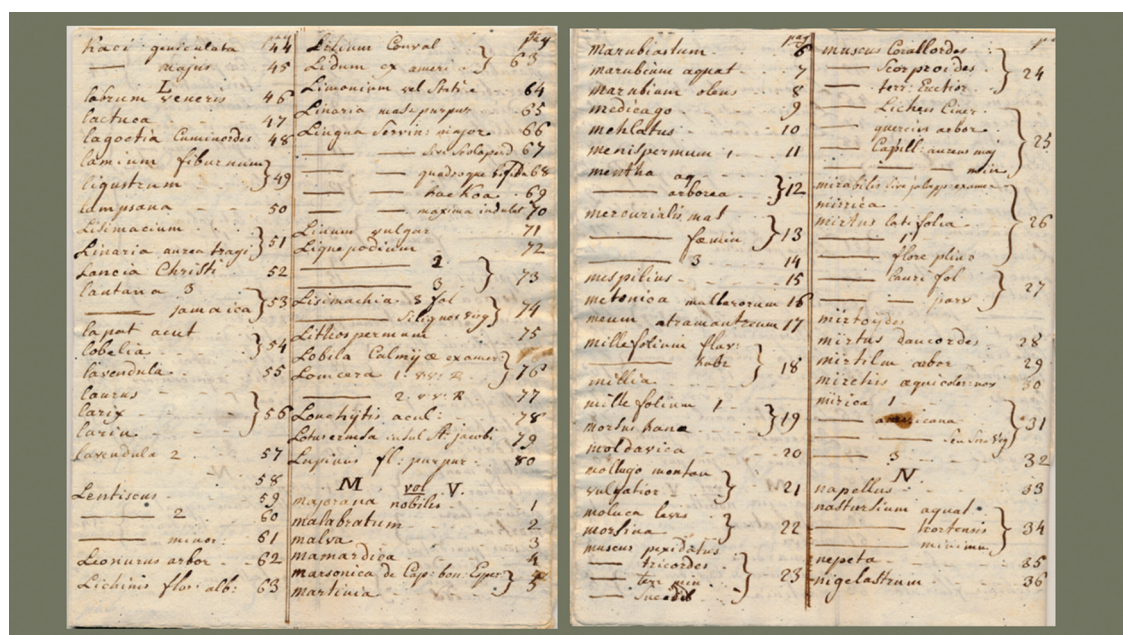 pag
Kaci geniculata 44
— majus 45
L
labrum veneris 46
lactuca 47
lagoetia Cuminordes 48
lamium
ligustrum 49
lampsana 50
Lisimacium
Linaria aurea tragi 51
Lancia Christi 52
lantana 3
— jamaica 53
lapat acut
lobelia 54
lavendula 55
laurus
larix 56
lavendula 2 57
58
Lentiscus 59
— 2 60
— minor 61
Leonurus arbor 62
Lichinis flor: alb: 63
pag
Lilium Conval
Lidum ex ameri 63
Limonium vel Statice 64
Linaria 65
Lingua Servin: major 66
— — 67
— — 68
— — 69
— — maxima 70
Linum vulgar 71
Lignopodium 72
— 2
— 3 73
Lisimachia 8 fol
— Siliquos virg 74
Lithospermum 75
Lobila examer
Lonicera 1: 76
— 2 77
Lonchytis acul: 78
insul St. jacobi 79
Lupinus fl: purpur 80
M vol V.
majorana nobilis 1
malabratum 2
malva 3
mamardica 4
marsonica de Cap: bon: Esper
martinia 5
pag
marubiastum 6
marubium aquat 7
marubium olens 8
medicago 9
mehlatus 10
menispermum 1 11
mentha aq
— arborea 12
mercurialis mat
— fœmin 13
— 3 14
mespilius 15
metonica mallerorum 16
meum atramantreum 17
millefolium flav:
— Rubr
millia 18
mille folium 1
morsus bana 19
moldavica 20
mollugo montan
vulgatior 21
moluca levis
morsina 22
muscus pixidatus
— tricordes
— ter: min
— 23
muscus Corallordes
— Scorproides
— terr: Erectior 24
— Lichens Ciner
— quercius arbor
— Capill: aureus maj
— min 25
mirabilis sive jalapp exame
mirrica
mirtus lati folia
— 1
— flore plino 26
— lauri fol
— — parv 27
mirtoydes
mirtus daucordes 28
mirtilus arbor 29
30
mirica 1
— americana
— 31
— 3 32
N
napellus 33
nasturcium aquat
— hortensis
— minimu 34
nepeta 35
nigelastrum 36